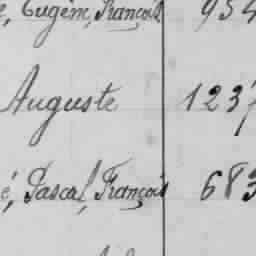 Eugène, François 954
Auguste 1237
é, Pascal, François 683